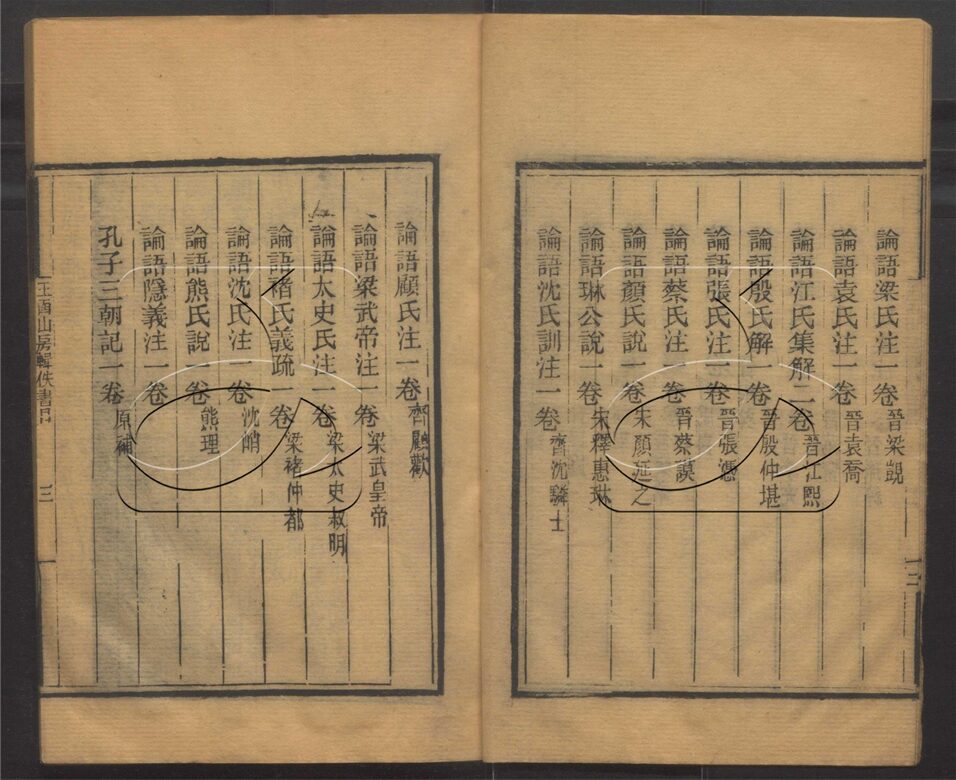 論語梁氏注一卷 晉梁覬
論語袁氏注一卷 晉袁喬
論語江氏集解二卷 晉江熙
論語殷氏解一卷 晉殷仲堪
論語張氏注一卷 晉張憑
論語蔡氏注一卷 晉蔡謨
論語顏氏說一卷 宋顏延之
論語琳公說一卷 宋釋惠琳
論語沈氏訓注一卷 齊沈驎士
論語顧氏注一卷 齊顧歡
論語梁武帝注一卷 梁武皇帝
論語太史氏注一卷 梁太史叔明
論語褚氏義疏一卷 梁褚仲都
論語沈氏注一卷 沈峭
論語熊氏說一卷 熊理
論語隱義注一卷
孔子三朝記一卷 原補
玉函山房輯佚書目 三